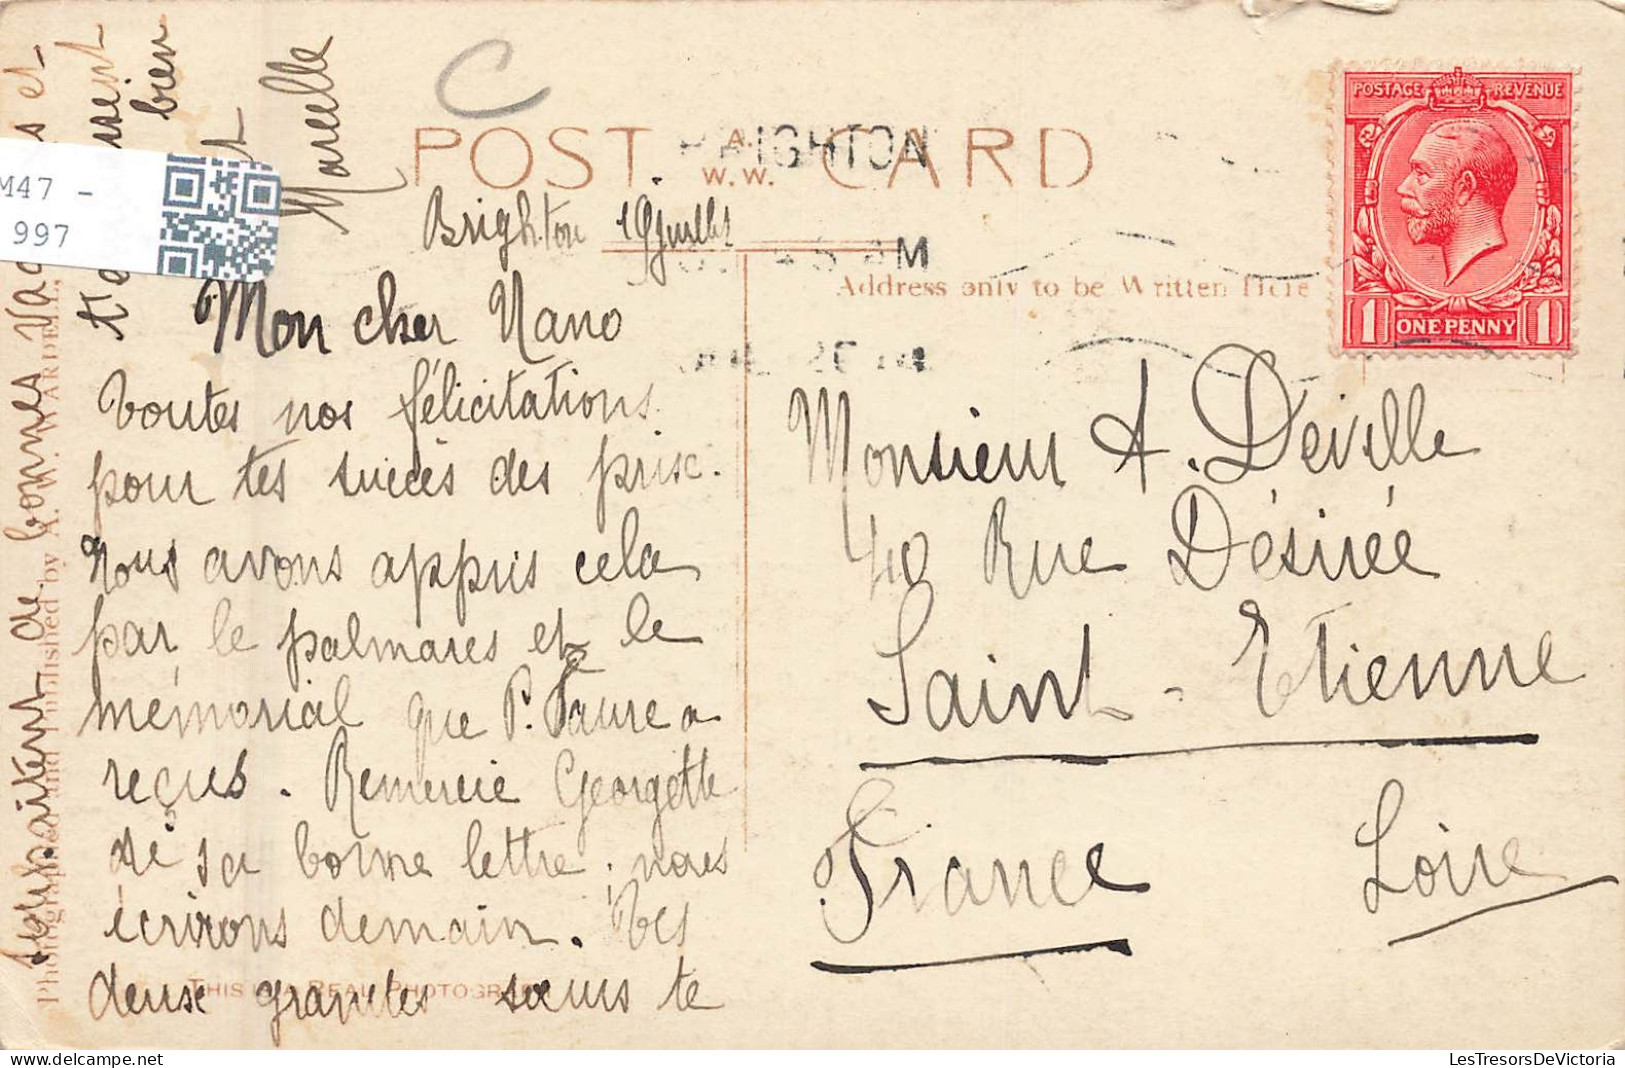 POST CARD
A.
W.W.
BRIGHTON
AM
POSTAGE REVENUE
1 ONE PENNY 1
Address only to be Written Here
Brighton 19 juillet
Mon cher Nano
Toutes nos félicitations
pour tes succès des prix.
Nous avons appris cela
par le palmares et le
mémorial que P. Faure a
reçus. Remercie Georgette
de sa bonne lettre, nous
écrirons demain. Tes
deux grandes sœurs te
souhaitent de bonnes vac s et
t'e ssent
bien
Marcelle
Monsieur A. Deville
40 Rue Désirée
Saint-Etienne
France Loire
Photographed and Published by A. W. WARDELL,
THIS IS A REAL PHOTOGRAPH
M47 -
997
LesTresorsDeVictoria